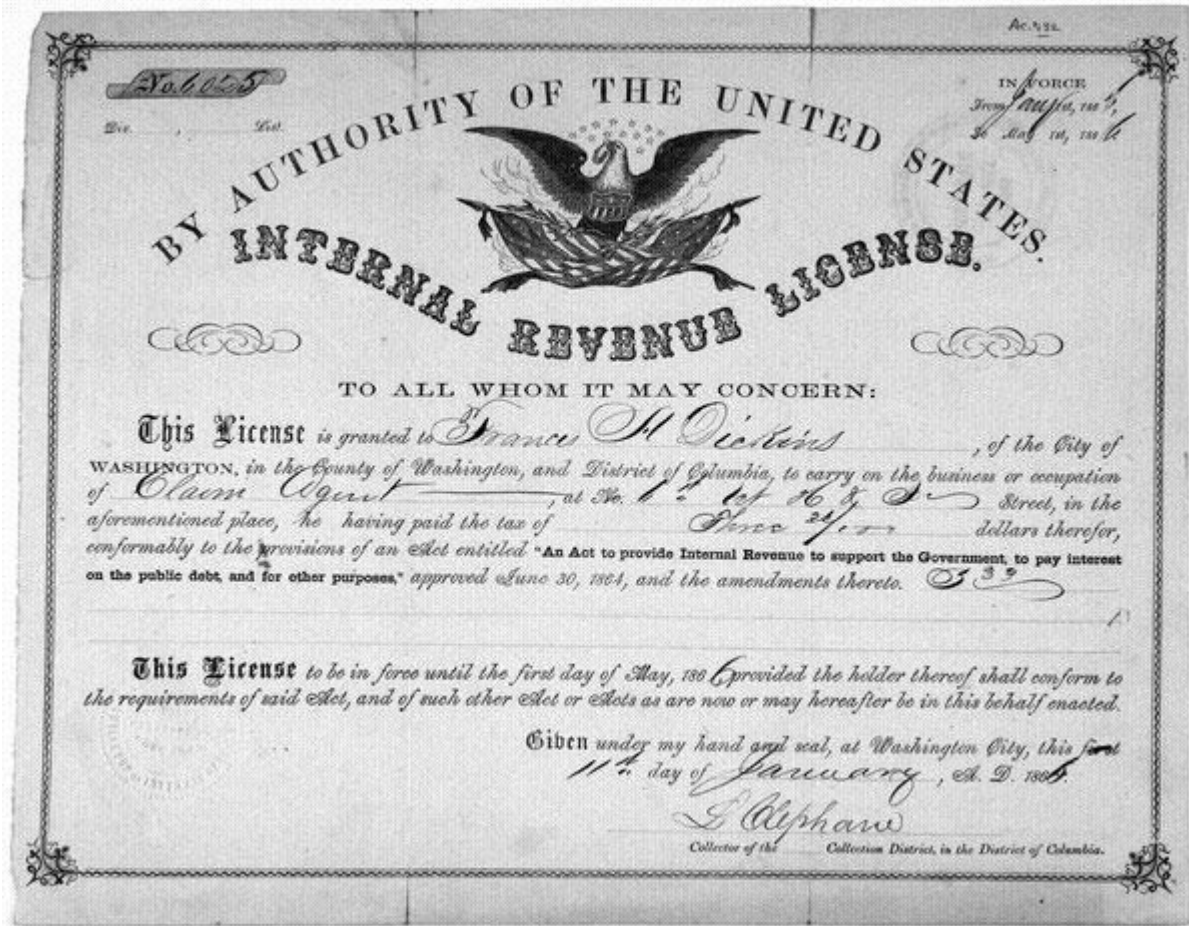 Ac.
No. 6025
IN FORCE
Div. , Dist.
From Jany 1st, 186
To May 1st, 1866
BY AUTHORITY OF THE UNITED STATES.
INTERNAL REVENUE LICENSE.
TO ALL WHOM IT MAY CONCERN:
This License is granted to Frances H Dickins, of the City of
WASHINGTON, in the County of Washington, and District of Columbia, to carry on the business or occupation
of Claim Agent, at No. H & Street, in the
aforementioned place, he having paid the tax of Three dollars therefor,
conformably to the provisions of an Act entitled "An Act to provide Internal Revenue to support the Government, to pay interest
on the public debt, and for other purposes," approved June 30, 1864, and the amendments thereto.
This License to be in force until the first day of May, 1866 provided the holder thereof shall conform to
the requirements of said Act, and of such other Act or Acts as are now or may hereafter be in this behalf enacted.
Given under my hand and seal, at Washington City, this first
11th day of January, A. D. 186
L Clephane
Collector of the Collection District, in the District of Columbia.